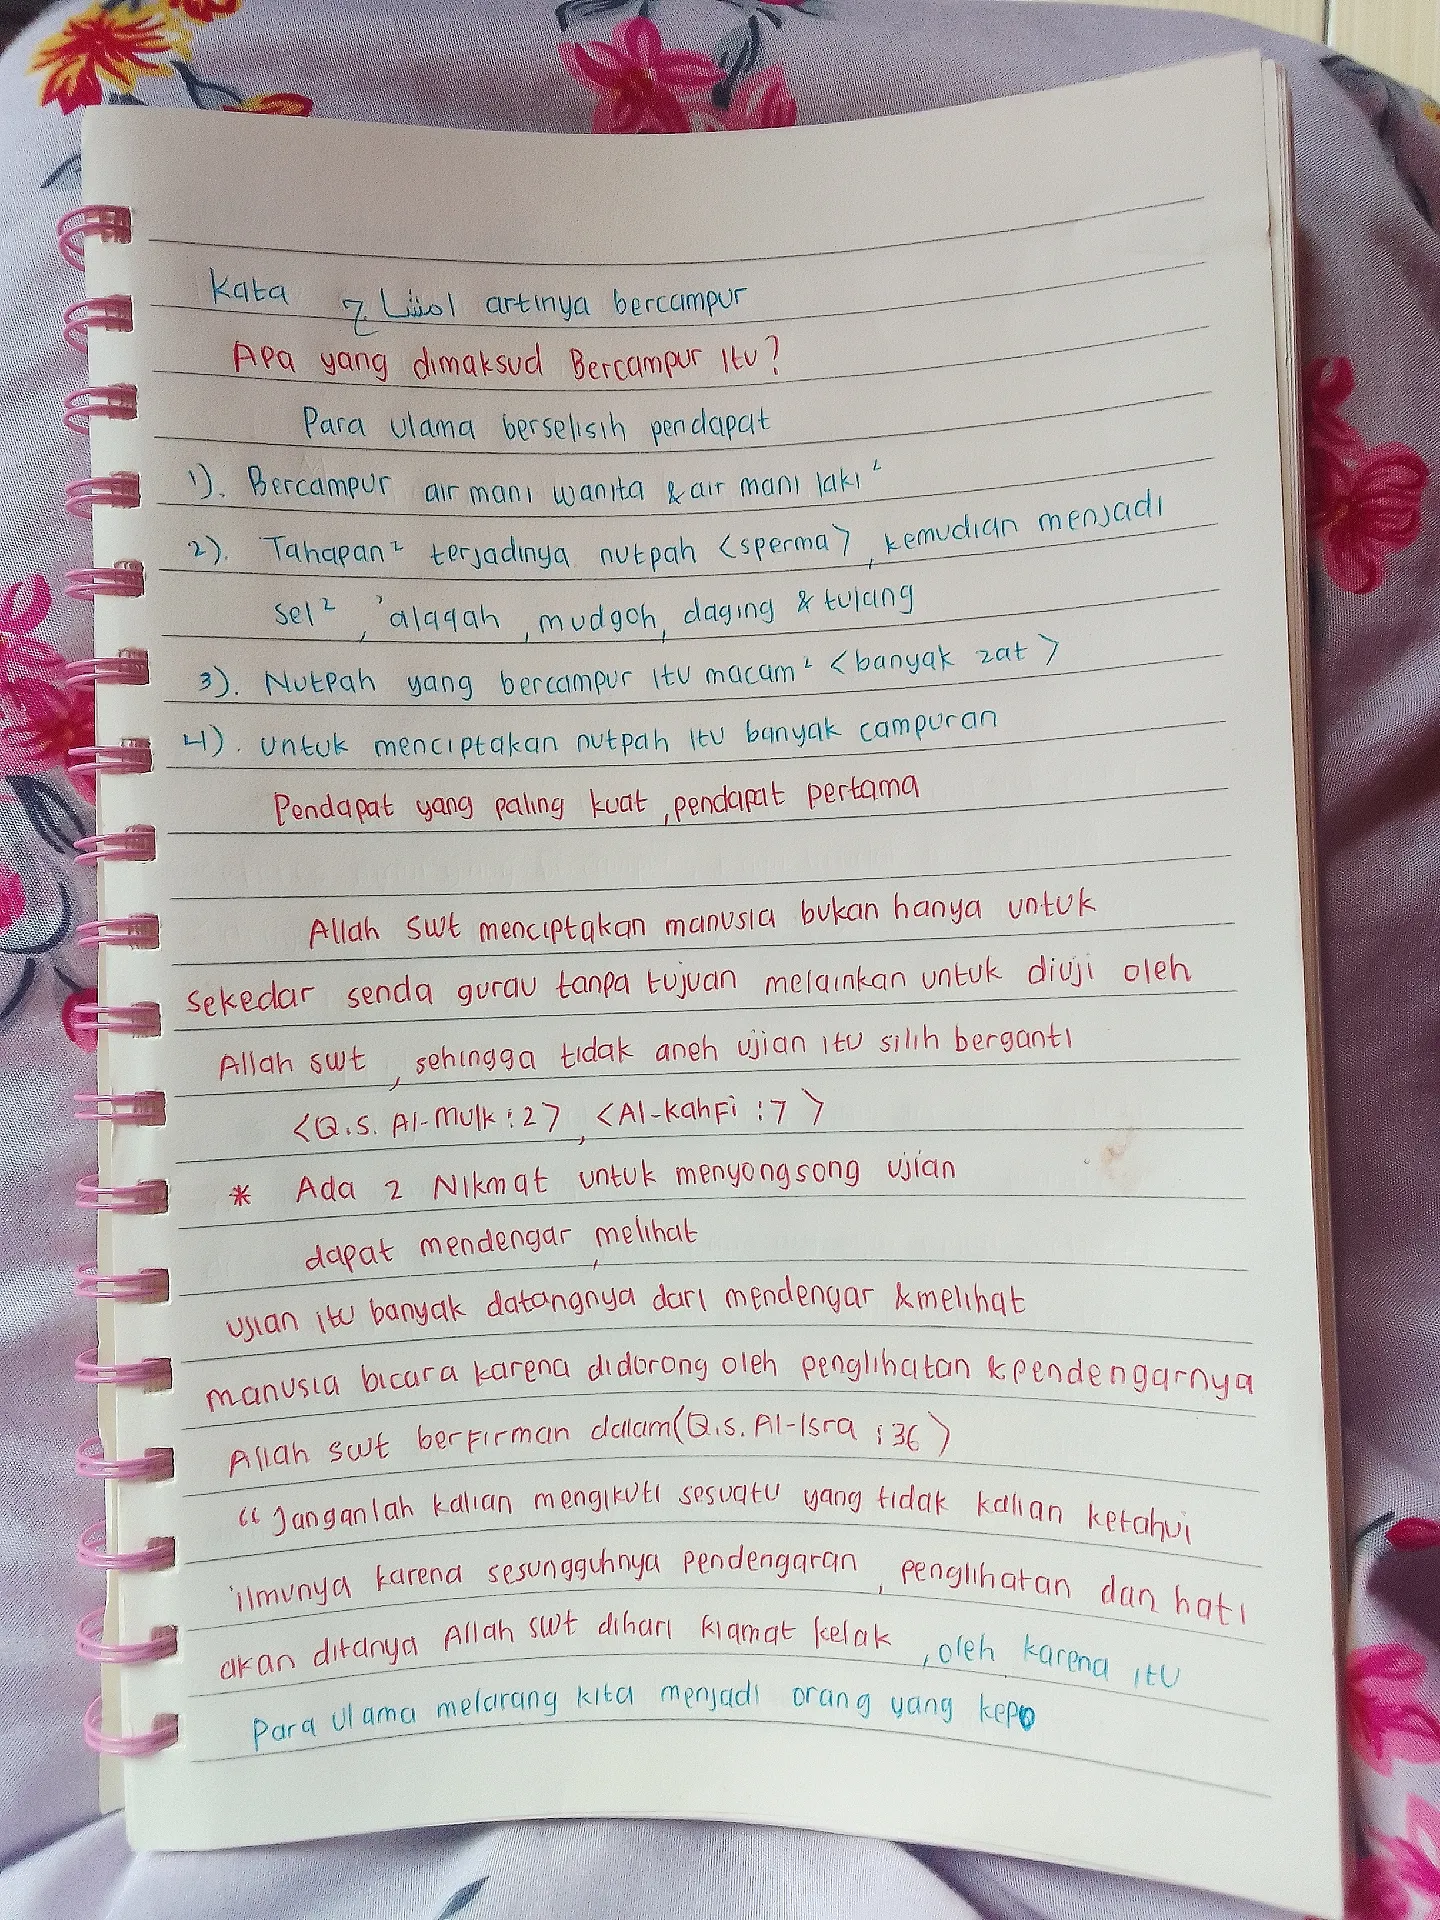 Kata امشاج artinya bercampur
Apa yang dimaksud Bercampur Itu?
Para ulama berselisih pendapat
1). Bercampur air mani wanita & air mani laki²
2). Tahapan² terjadinya nutpah <sperma>, kemudian menjadi
sel², 'alaqah, mudgoh, daging & tulang
3). Nutpah yang bercampur itu macam² <banyak zat>
4). untuk menciptakan nutpah itu banyak campuran
Pendapat yang paling kuat, pendapat pertama
Allah swt menciptakan manusia bukan hanya untuk
sekedar senda gurau tanpa tujuan melainkan untuk diuji oleh
Allah swt, sehingga tidak aneh ujian itu silih berganti
<Q.S. Al-Mulk : 2>, <Al-kahfi : 7>
* Ada 2 Nikmat untuk menyongsong ujian
dapat mendengar, melihat
ujian itu banyak datangnya dari mendengar & melihat
manusia bicara karena didorong oleh penglihatan & pendengarnya
Allah swt berfirman dalam (Q.S. Al-Isra : 36)
“Janganlah kalian mengikuti sesuatu yang tidak kalian ketahui
ilmunya karena sesungguhnya pendengaran, penglihatan dan hati
akan ditanya Allah swt dihari kiamat kelak, oleh karena itu
Para ulama melarang kita menjadi orang yang kepo